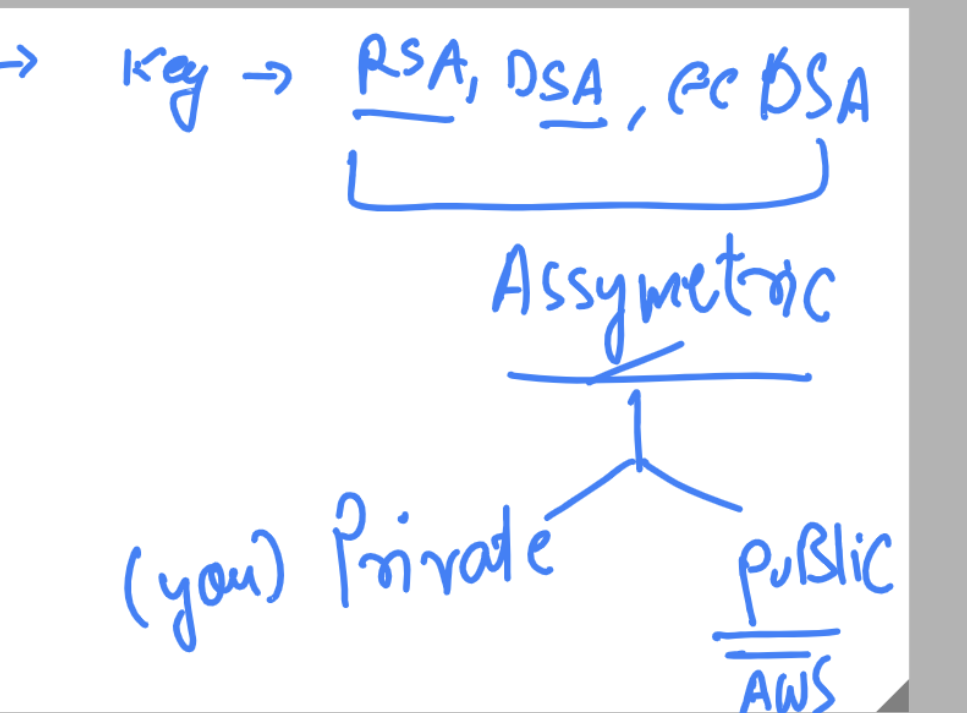 → Key → RSA, DSA, ECDSA
Assymetric
(you) Private puBlic
AWS